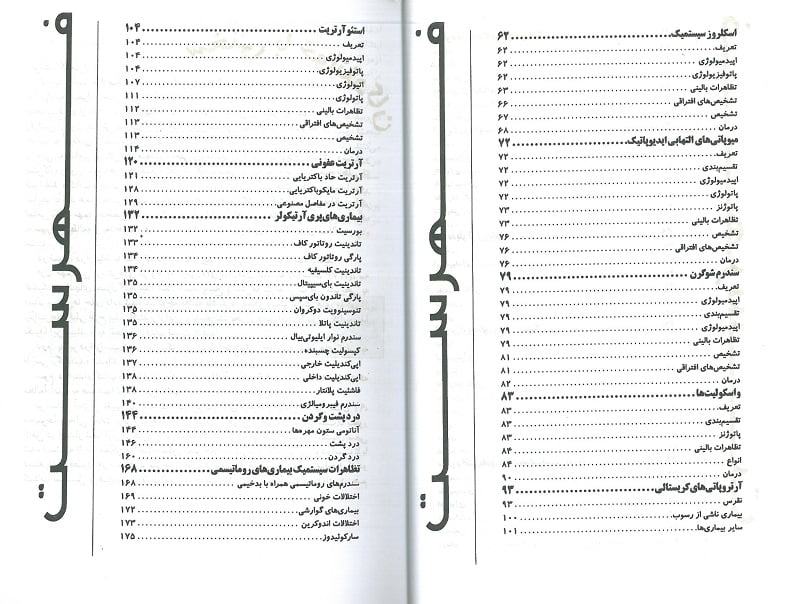 فهرست
اسکلروز سیستمیک ۶۲
تعریف ۶۲
اپیدمیولوژی ۶۲
پاتوفیزیولوژی ۶۲
تظاهرات بالینی ۶۳
تشخیص‌های افتراقی ۶۶
تشخیص ۶۷
درمان ۶۸
میوپاتی‌های التهابی ایدیوپاتیک ۷۲
تعریف ۷۲
تقسیم‌بندی ۷۲
اپیدمیولوژی ۷۲
پاتولوژی ۷۲
پاتوژنز ۷۳
تظاهرات بالینی ۷۳
تشخیص ۷۶
تشخیص‌های افتراقی ۷۶
درمان ۷۶
سندرم شوگرن ۷۹
تعریف ۷۹
اپیدمیولوژی ۷۹
تقسیم‌بندی ۷۹
اپیدمیولوژی ۷۹
تظاهرات بالینی ۷۹
تشخیص ۸۱
تشخیص‌های افتراقی ۸۱
درمان ۸۲
واسکولیت‌ها ۸۳
تعریف ۸۳
تقسیم‌بندی ۸۳
پاتوژنز ۸۳
تظاهرات بالینی ۸۴
انواع ۸۴
درمان ۹۰
آرتروپاتی‌های کریستالی ۹۳
نقرس ۹۳
بیماری ناشی از رسوب ۱۰۰
سایر بیماری‌ها ۱۰۱
فهرست
استئوآرتریت ۱۰۴
تعریف ۱۰۴
اپیدمیولوژی ۱۰۴
پاتوفیزیولوژی ۱۰۴
اتیولوژی ۱۰۷
پاتولوژی ۱۱۱
تظاهرات بالینی ۱۱۲
تشخیص‌های افتراقی ۱۱۳
تشخیص ۱۱۳
درمان ۱۱۴
آرتریت عفونی ۱۲۰
آرتریت حاد باکتریایی ۱۲۱
آرتریت مایکوباکتریایی ۱۲۸
آرتریت در مفاصل مصنوعی ۱۲۹
بیماری‌های پری آرتیکولر ۱۳۲
بورسیت ۱۳۲
تاندینیت روتاتور کاف ۱۳۳
پارگی روتاتور کاف ۱۳۴
تاندینیت کلسیفیه ۱۳۴
تاندینیت بای‌سیپیتال ۱۳۵
پارگی تاندون بای‌سپس ۱۳۵
تنوسینوویت دوکروان ۱۳۵
تاندینیت پاتلا ۱۳۵
سندرم نوار ایلیوتی‌بیال ۱۳۶
کپسولیت چسبنده ۱۳۶
اپی‌کندیلیت خارجی ۱۳۷
اپی‌کندیلیت داخلی ۱۳۸
فاشئیت پلانتار ۱۳۸
سندرم فیبرومیالژی ۱۴۰
درد پشت و گردن ۱۴۴
آناتومی ستون مهره‌ها ۱۴۴
درد پشت ۱۴۶
درد گردن ۱۶۰
تظاهرات سیستمیک بیماری‌های روماتیسمی ۱۶۸
سندرم‌های روماتیسمی همراه با بدخیمی ۱۶۸
اختلالات خونی ۱۶۹
بیماری‌های گوارشی ۱۷۲
اختلالات اندوکرین ۱۷۳
سارکوئیدوز ۱۷۵